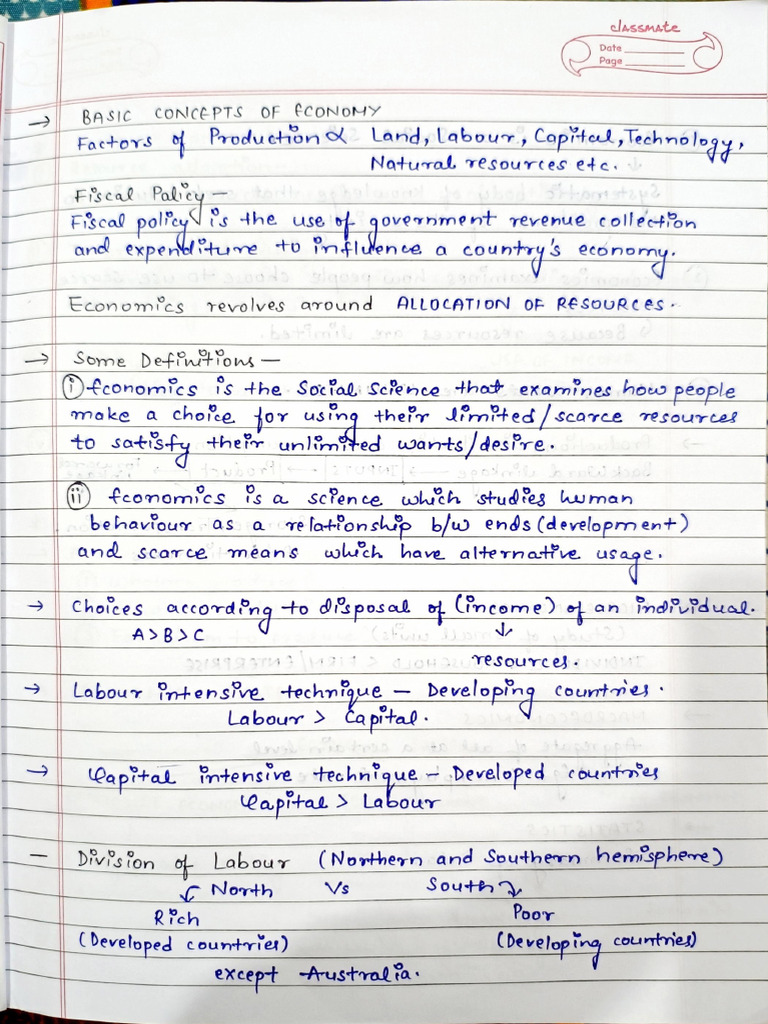 classmate
Date
Page
→ BASIC CONCEPTS OF ECONOMY
Factors of Production ∝ Land, Labour, Capital, Technology,
Natural resources etc.
Fiscal Policy —
Fiscal policy is the use of government revenue collection
and expenditure to influence a country's economy.
Economics revolves around ALLOCATION OF RESOURCES.
→ Some Definitions —
(i) Economics is the Social Science that examines how people
make a choice for using their limited/scarce resources
to satisfy their unlimited wants/desire.
(ii) Economics is a science which studies human
behaviour as a relationship b/w ends (development)
and scarce means which have alternative usage.
→ Choices according to disposal of (income) of an individual.
A > B > C ↓
resources.
→ Labour intensive technique — Developing countries.
Labour > Capital.
→ Capital intensive technique — Developed countries
Capital > Labour
— Division of Labour (Northern and Southern hemisphere)
↙ North Vs South ↘
Rich Poor
(Developed countries) (Developing countries)
except Australia.